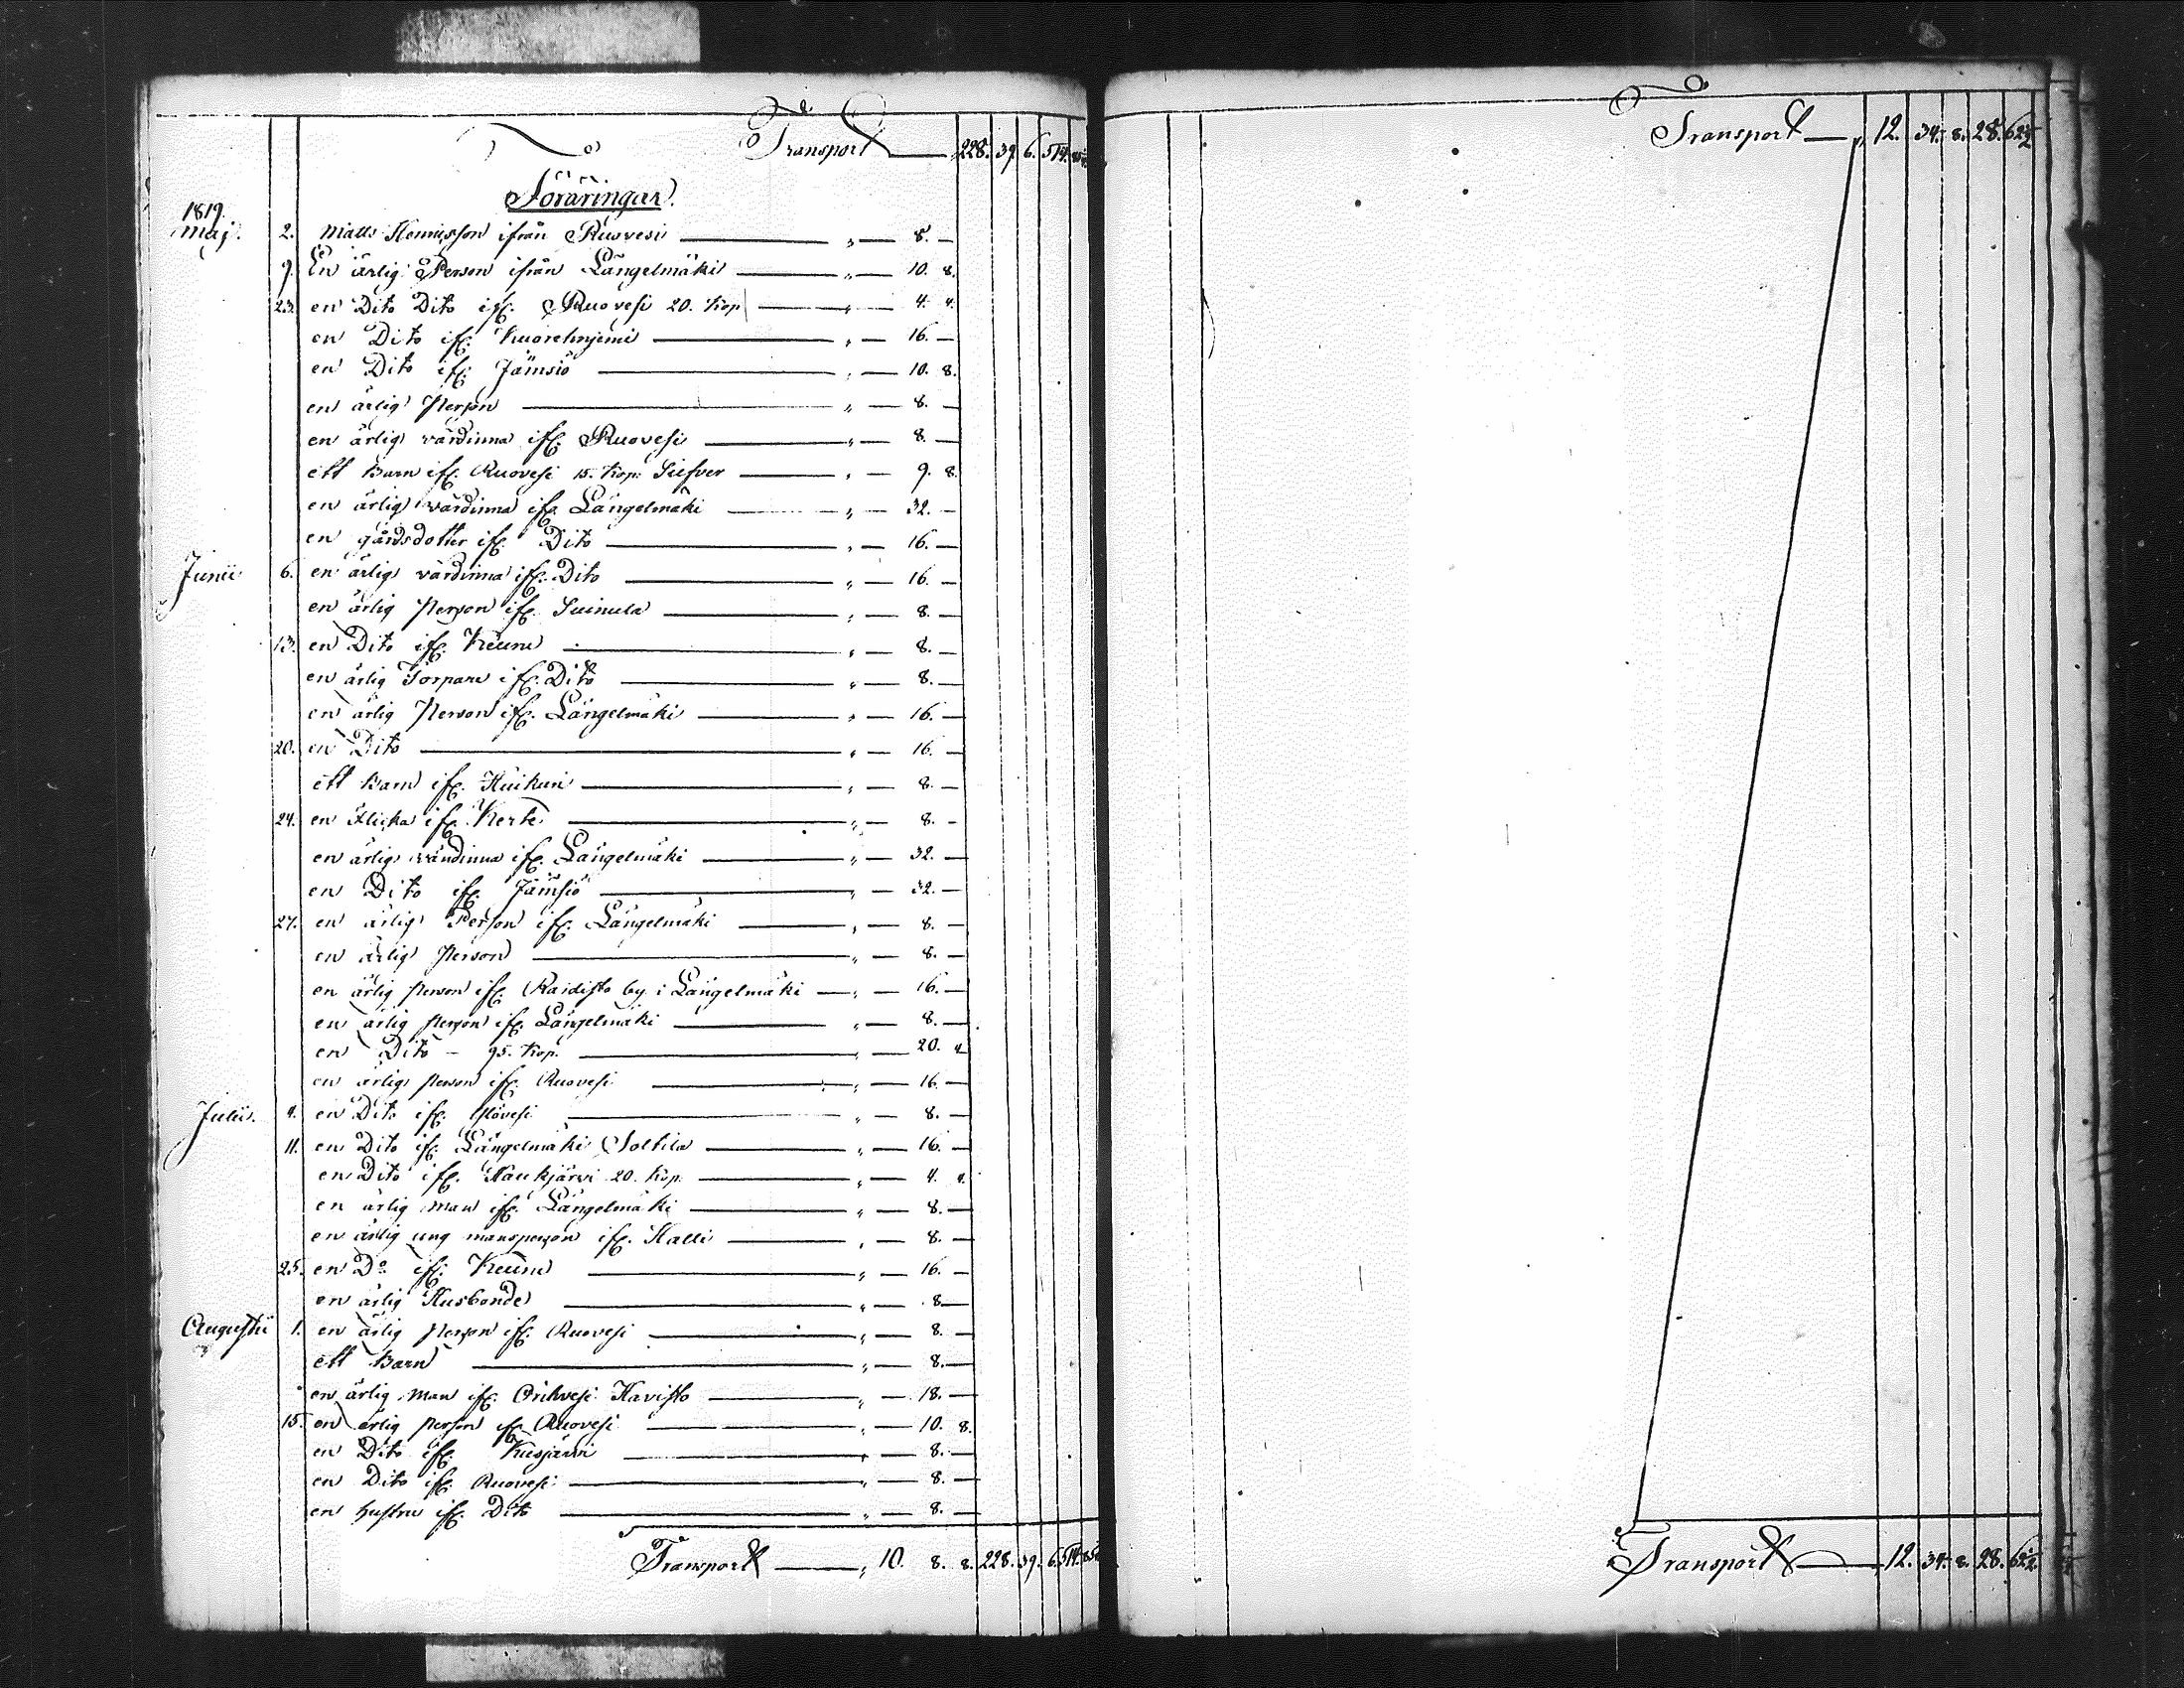 Transport — 228. 39. 6. 514.
Föräringar.
1819.
Maj. 2. Matts Hennisson ifrån Ruovesi — " — 8. —
9. En ärlig Person ifrån Längelmäki — " — 10. 8.
23. en Dito Dito ifr. Ruovesi 20. Kop — " — 4. 4.
en Dito ifr. Kuorehnjemi — " — 16. —
en Dito ifr. Jämsiö — " — 10. 8.
en ärlig Person — " — 8. —
en ärlig värdinna ifr. Ruovesi — " — 8. —
ett Barn ifr. Ruovesi 15. Kop. Silfver — " — 9. 8.
en ärlig värdinna ifr. Längelmäki — " — 32. —
en gårdsdotter ifr. Dito — " — 16. —
Junii 6. en ärlig värdinna ifr. Dito — " — 16. —
en ärlig Person ifr. Suinula — " — 8. —
13. en Dito ifr. Keuru — " — 8. —
en ärlig Torpare ifr. Dito — " — 8. —
en ärlig Person ifr. Längelmäki — " — 16. —
20. en Dito — " — 16. —
ett Barn ifr. — " — 8. —
24. en Flicka ifr. Kerte — " — 8. —
en ärlig värdinna ifr. Längelmäki — " — 32. —
en Dito ifr. Jämsiö — " — 32. —
27. en ärlig Person ifr. Längelmäki — " — 8. —
en ärlig Person — " — 8. —
en ärlig person ifr. Raidisto by i Längelmäki — " — 16. —
en ärlig person ifr. Längelmäki — " — 8. —
en Dito – 95. Kop. — " — 20. 4
en ärlig person ifr. Ruovesi — " — 16. —
Julii. 4. en Dito ifr. — " — 8. —
11. en Dito ifr. Längelmäki Solkila — " — 16. —
en Dito ifr. Haukjärvi 20. Kop. — " — 4. 4.
en ärlig man ifr. Längelmäki — " — 8. —
en ärlig ung mansperson ifr. Halli — " — 8. —
25. en D:o ifr. Keuru — " — 16. —
en ärlig Husbonde — " — 8 —
Augustii 1. en ärlig Person ifr. Ruovesi — " — 8. —
ett Barn — " — 8. —
en ärlig man ifr. Orihvesi Kavisto — " — 18. —
15. en ärlig person ifr. Ruovesi — " — 10. 8.
en Dito ifr. — " — 8. —
en Dito ifr. Ruovesi — " — 8. —
en hustru ifr. Dito — " — 8. —
Transport — " 10. 8. 8. 228. 39. 6. 514.
Transport — " 12. 34. 8. 28. 62½
Transport — 12. 34. 8. 28. 62½.